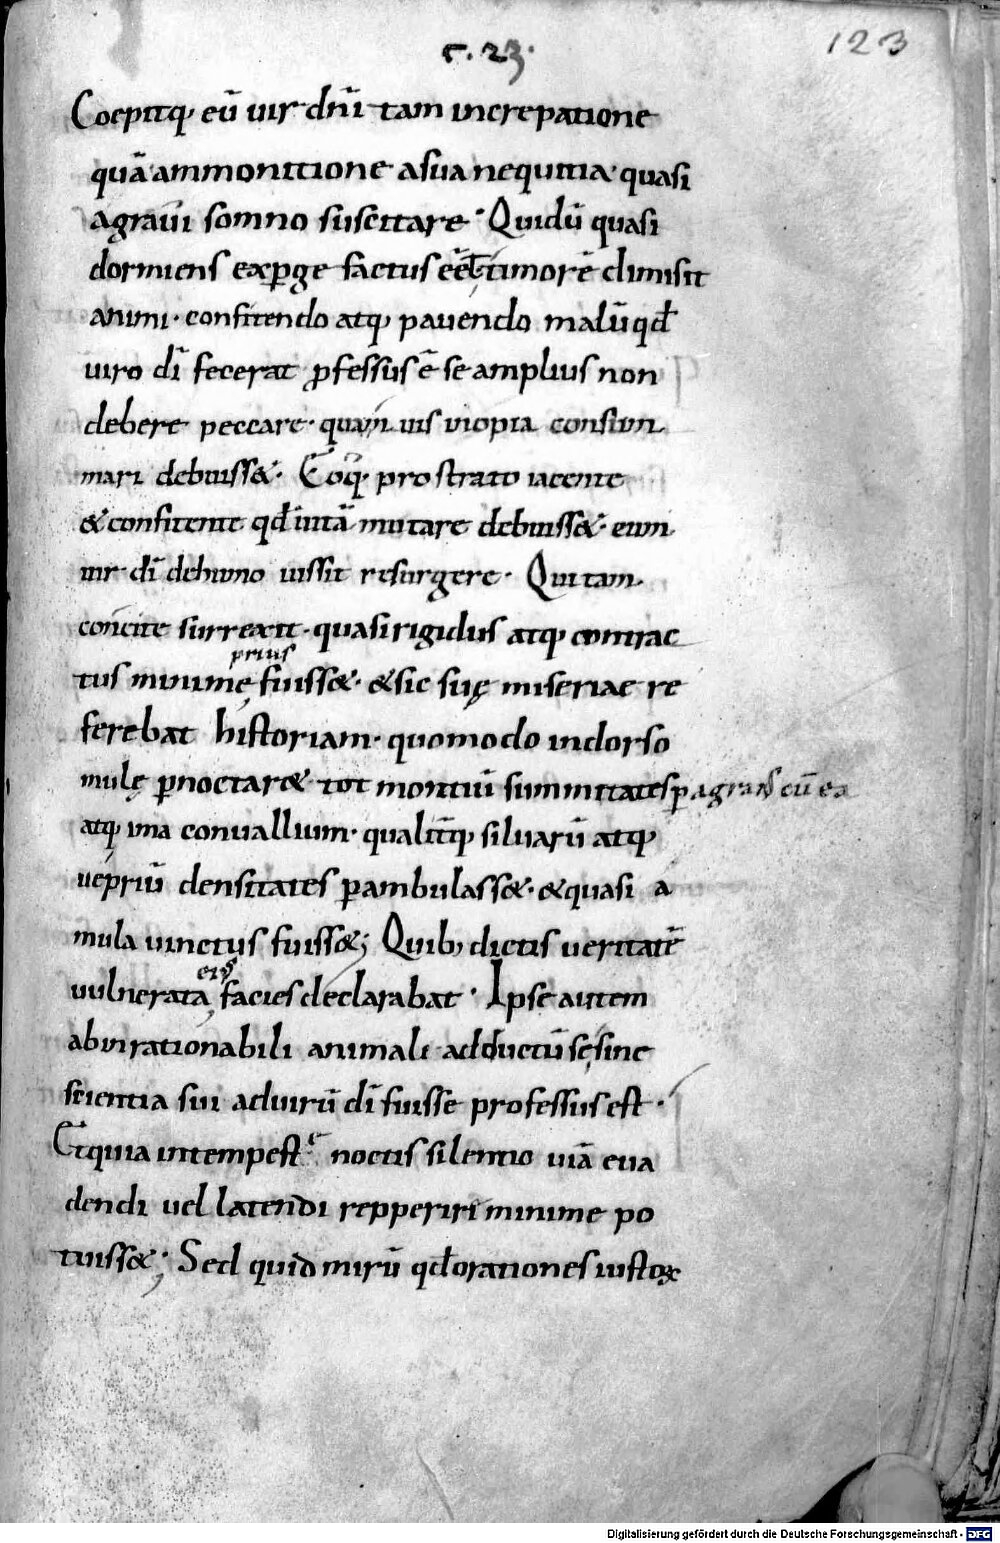 c. 23.
123
Coepitq; eū uir dn̄i tam increpatione
quā ammonitione a sua nequitia quasi
a graui somno suscitare · Qui dū quasi
dormiens exꝑge factus timorē dimisit
animi · confitendo atq; pauendo malū qđ
uiro dī fecerat ꝓfessus ē se amplius non
debere peccare · quam uis inopia consum
mari debuiss& · Eoq; prostrato iacente
& confitente qđ uitā mutare debuiss& · eum
uir dī dehumo iussit resurgere · Qui tam
concite surrexit · quasi rigidus atq; contrac
prius
tus minime fuiss& · & sic suę miseriae re
ferebat historiam · quomodo in dorso
mulę ꝑnoctar& tot montiū summitates ꝑagrans cū ea
atq; ima conuallium · qualit̄q; siluarū atq;
uepriū densitates ꝑambulass& · & quasi a
mula uinctus fuiss&; Quib; dictis ueritatē
ei;
uulnerata facies declarabat · Ipse autem
ab inrationabili animali adductū sę sine
scientia sui ad uirū dī fuisse professus est ·
Et quia intempestę noctis silentio uiā eua
dendi uel latendi repperiri minime po
tuiss&; Sed quid mirū qđ orationes iustoꝝ
Digitalisierung gefördert durch die Deutsche Forschungsgemeinschaft - DFG